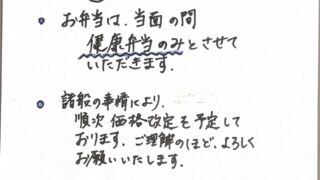 お弁当は、当面の間
健康弁当のみとさせて
いただきます.
諸般の事情により、
順次 価格改定を予定して
おります. ご理解のほど、よろしく
お願いいたします.